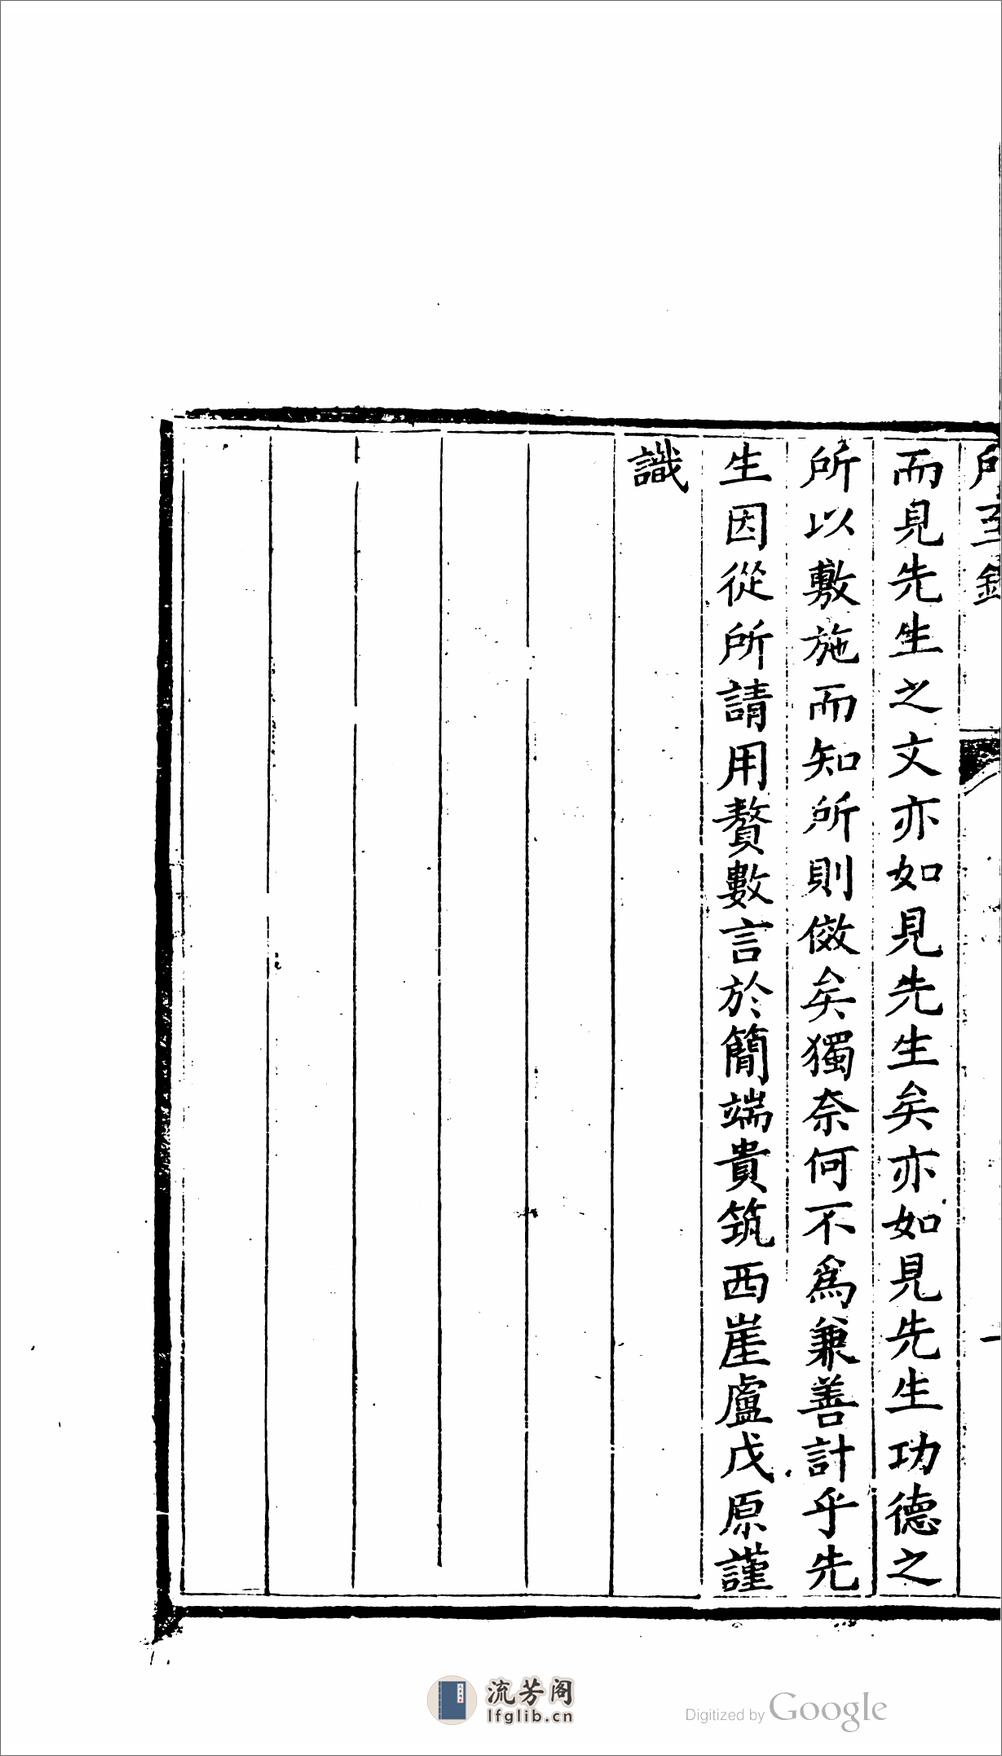 而見先生之文亦如見先生矣亦如見先生功德之
所以敷施而知所則傚矣獨奈何不爲兼善計乎先
生因從所請用贅數言於簡端貴筑西崖盧戊原謹
識
流芳阁
lfglib.cn
Digitized by Google